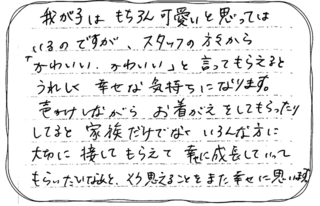 我が子は もちろん 可愛いと思っては
いるのですが、スタッフの方々から
「かわいい、かわいい」と言ってもらえると
うれしく 幸せな気持ちになります。
声かけしながら お着がえをしてもらったり
してると 家族だけでなく いろんな方に
大切に 接してもらえて 幸に成長していって
もらいたいなあと、そう思えることをまた幸せに思います